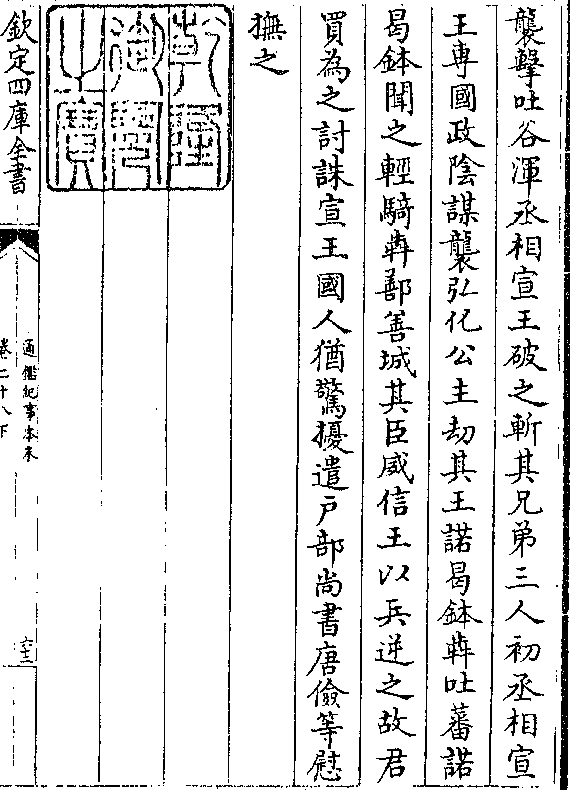 襲擊吐谷渾丞相宣王破之斬其兄弟三人初丞相宣
王専國政陰謀襲弘化公主劫其王諾曷鉢犇吐蕃諾
曷鉢聞之輕騎犇鄯善城其臣威信王以兵逆之故君
買為之討誅宣王國人猶驚擾遣戸部尚書唐儉等慰
撫之
乾隆
御覽
之寶
欽定四庫全書
通鑑紀事本末
卷二十八下
六十三